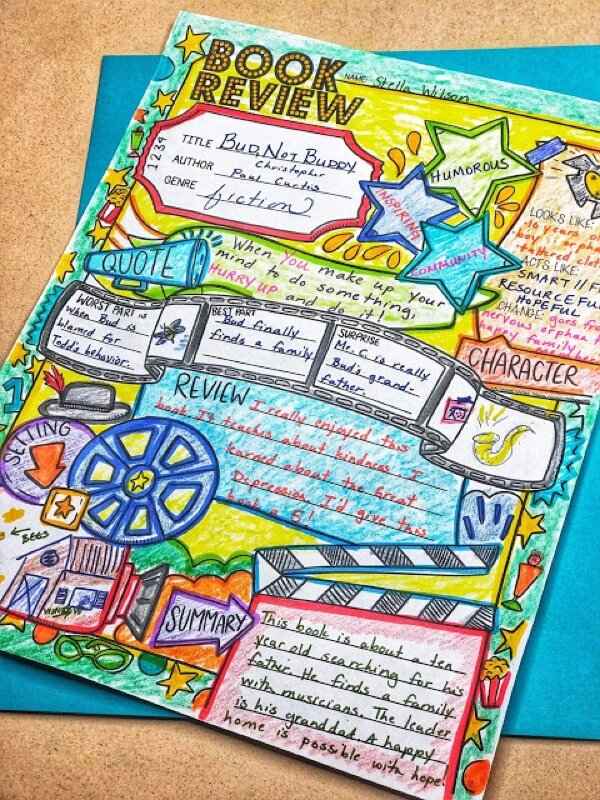 BOOK
REVIEW
NAME Stella Wilson
1 2 3 4
TITLE BUD, NOT BUDDY
AUTHOR Christopher
Paul Curtis
GENRE fiction
HUMOROUS
INSPIRING
COMMUNITY
LOOKS LIKE:
10 years
boy, orphan
tattered
ACTS LIKE:
SMART //
RESOURCEFUL
HOPEFUL
CHANGE: goes from
nervous orphan to
happy family
CHARACTER
QUOTE
When you make up your
mind to do something,
HURRY UP and do it!
WORST PART is
when Bud is
blamed for
Todd's behavior.
BEST PART
Bud finally
finds a family.
SURPRISE
Mr. C is really
Bud's grand-
father.
REVIEW I really enjoyed this
book. It teaches about kindness. I
learned about the Great
Depression. I'd give this
book a 5!
SETTING
BEES
SUMMARY
This book is about a ten
year old searching for his
father. He finds a family
with musicians. The leader
is his granddad. A happy
home is possible with hope.